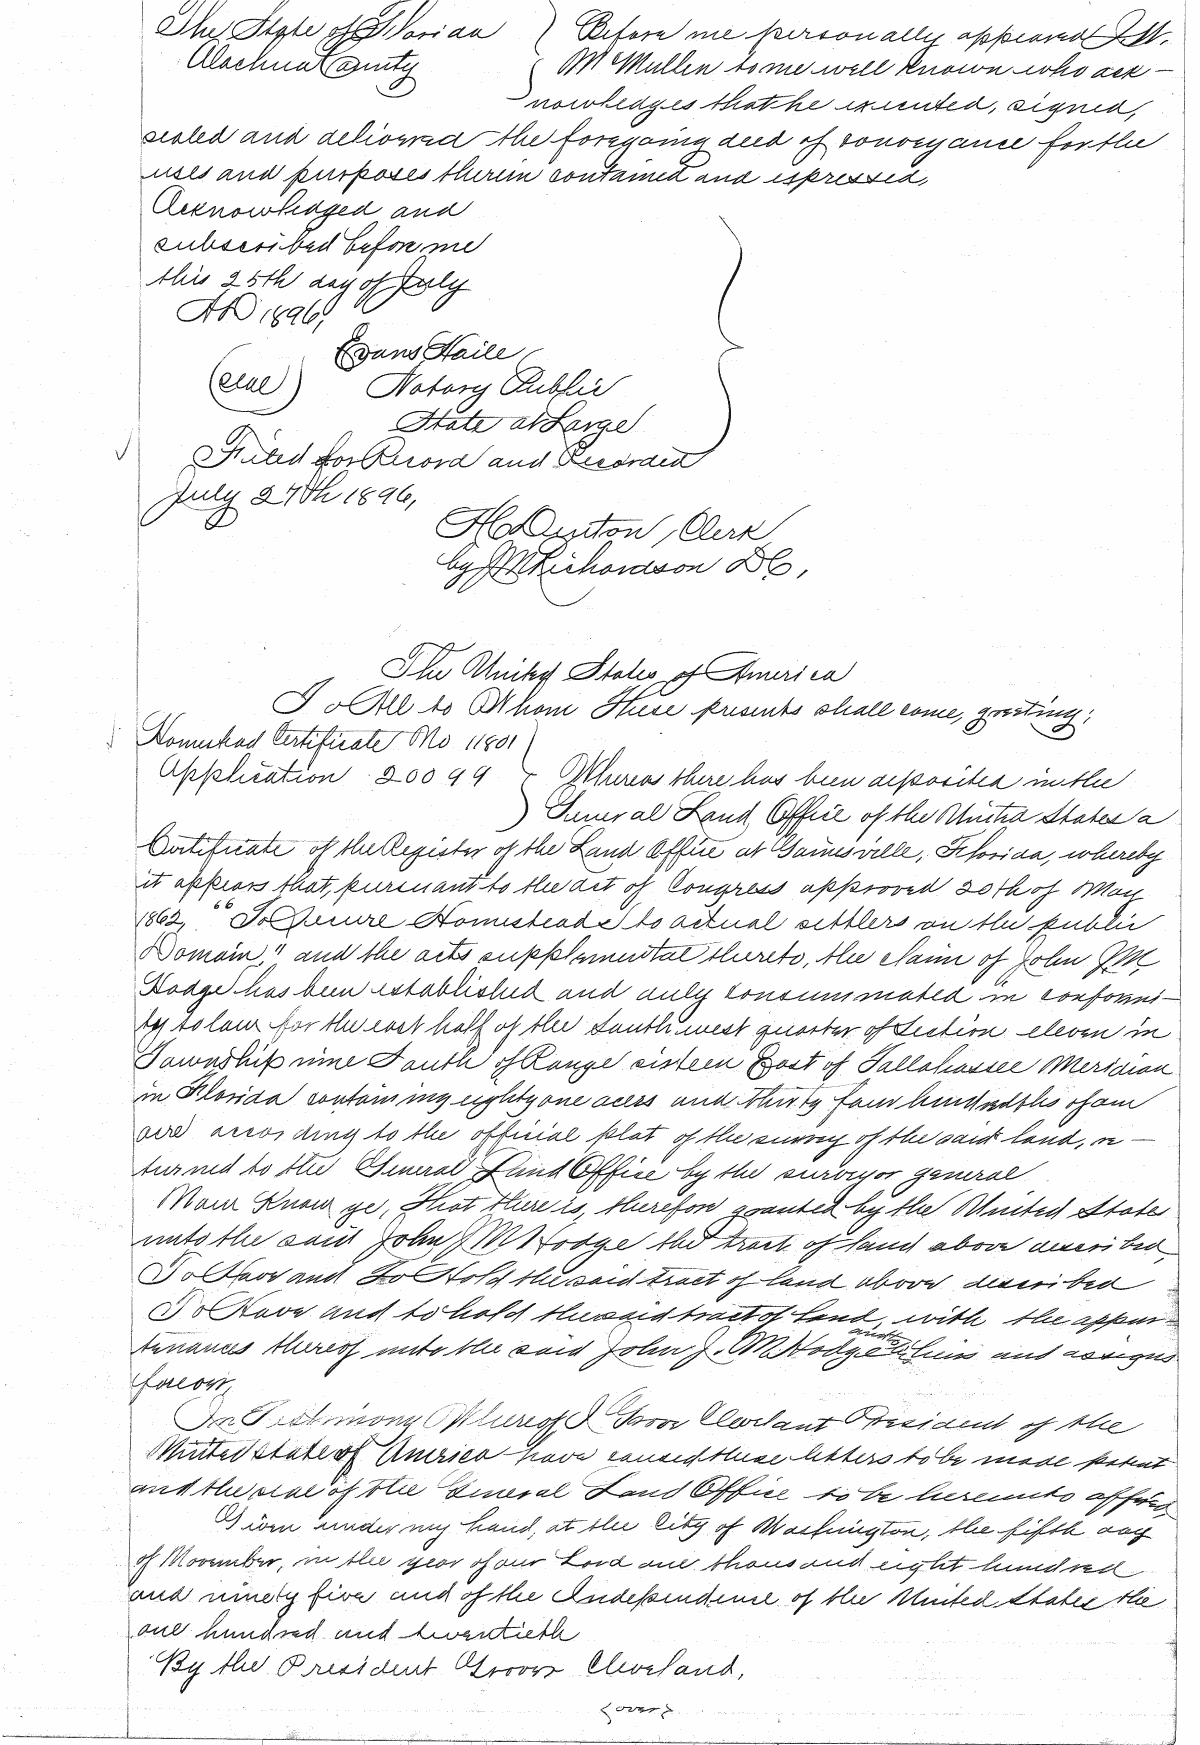 The State of Florida } Before me personally appeared J.W.
Alachua County } McMullen to me well known who ack-
nowledges that he executed, signed,
sealed and delivered the foregoing deed of conveyance for the
uses and purposes therein contained and expressed.
Acknowledged and
subscribed before me
this 25th day of July
AD 1896,
Evans Haile
(seal) Notary Public
State at Large
Filed for Record and Recorded
July 27th 1896,
H C Denton, Clerk
by J M Richardson DC,
The United States of America
To All to Whom These presents shall come, greeting:
Homestead Certificate No 11801
Application 20099 } Whereas there has been deposited in the
General Land Office of the United States a
Certificate of the Register of the Land Office at Gainesville, Florida, whereby
it appears that, pursuant to the act of Congress approved 20th of May
1862, "To Secure Homesteads to actual settlers on the public
Domain," and the acts supplemental thereto, the claim of John J. M.
Hodge has been established and duly consummated in conformi-
ty to law for the east half of the South west quarter of Section eleven in
Township nine South of Range sixteen East of Tallahassee Meridian
in Florida containing eighty one acers and thirty four hundredths of an
acre according to the official plat of the survey of the said land, re-
turned to the General Land Office by the surveyor general
Now Know ye, That there is, therefore granted by the United States
unto the said John J M Hodge the tract of land above described,
To Have and To Hold the said tract of land above described
To Have and to hold the said tract of land, with the appur-
tenances thereof unto the said John J. M. Hodge and to his heirs and assigns
forever,
In Testimony Whereof I Grover Cleveland President of the
United States of America have caused these letters to be made patent
and the seal of the General Land Office to be hereunto affixed,
Given under my hand, at the City of Washington, the fifth day
of November, in the year of our Lord one thousand eight hundred
and ninety five and of the Independence of the United States the
one hundred and twentieth
By the President Grover Cleveland,
(over)